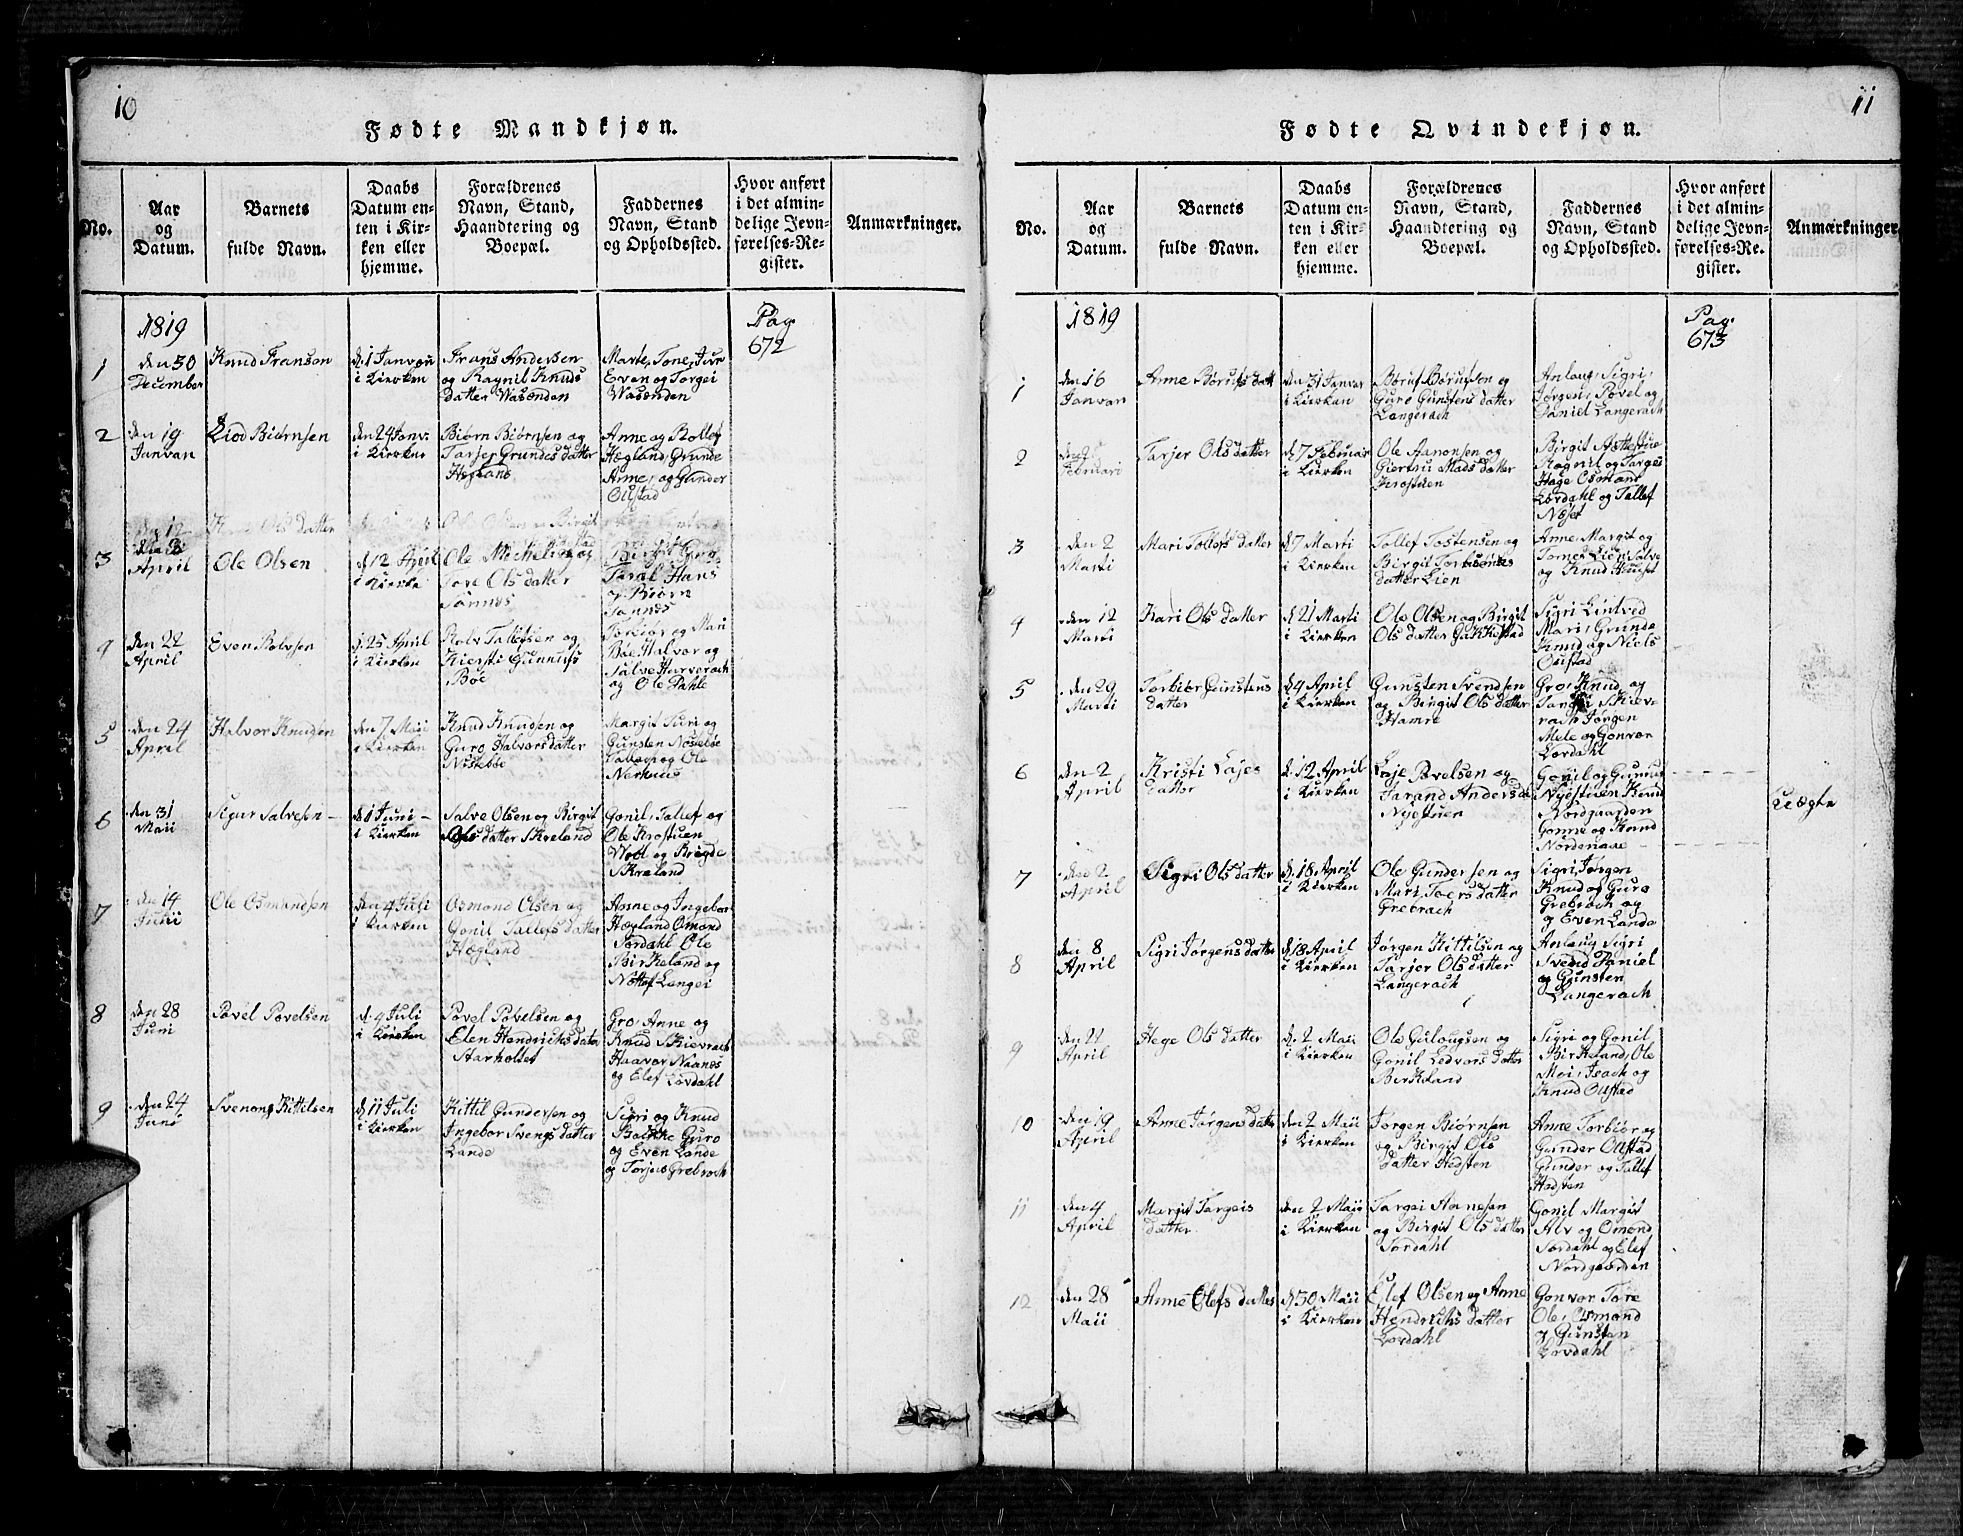 10
Fødte Mandkjøn.
No.
Aar
og
Datum.
Barnets
fulde Navn.
Daabs
Datum en-
ten i Kir-
ken eller
hjemme.
Forældrenes
Navn, Stand,
Haandtering og
Boepæl.
Faddernes
Navn, Stand
og Opholdssted.
Hvor anført
i det almin-
delige Jevn-
førelses-Re-
gister.
Anmærkninger.
1819
Pag.
672
1
den 30
December
Knud Fransøn
d. 1 Januar
i Kierken
Frans Anderssen
og Ragnil Knuds
datter Wasenden
Marte, Tone,
Even og Torgei
Wasenden
2
den 19
Januar
Liod Biørnsen
den 24 Janv.
i Kierken
Biørn Biørnsen og
Tarjer Grundes datter
Hegland
Anne og Rollef
Hægland, Grunde
Anne, og Gunder
Olistad
3
April
Ole Olsen
d. 12 April
i Kierke
Ole Michelsen og
Tore Ols datter
Tønnes
Birgit Gro
Taral Hans
og Biørn
Tønnes
4
den 22
April
Even Rolvsen
d. 25 April
i Kierken
Rolv Tallefsen og
Kiersti Gunnufs
Bøe
Torbiør og Mari
Bøe Halvor og
Salve Harverach
og Ole Dahle
5
den 24
April
Halvor Knudsen
den 7 Maii
i Kierken
Knud Knudsen og
Guro Halvorsdatter
Niskebøe
Margit Turi og
Gunsten Nostebøe
og Ole
Nerhuus
6
den 31
Maii
Sigur Salvesen
d. 1 Juni
i Kierken
Salve Olsen og Birgit
Ols datter Skreland
Gonil, Tallef og
Ole Krostuen
og Brigde
Skreland
7
den 14
Junii
Ole Osmundsen
den 4 Juli
i Kierken
Osmond Olsen og
Gonil Tallefs datter
Hægland
Anne og Ingebor
Hægland Omond
Sordahl Ole
Birkeland og
Nottof Langei
8
den 28
Juni
Povel Povelsen
d. 4 Juli
i Kierken
Povel Povelsen og
Elen Hendrichsdater
Aarholtet
Gro, Anne og
Knud Skievrach
Haavor Naanes
og Elef Lovdahl
9
den 24
Juni
Svenong Kittelsen
d. 11 Juli
i Kierken
Kittil Gundersen og
Ingebor Svengs datter
Lande
Sigri og Knud
Guro
og Even Lande
og Torjus Grebrach
11
Fødte Qvindekjøn.
No.
Aar
og
Datum.
Barnets
fulde Navn.
Daabs
Datum en-
ten i Kir-
ken eller
hjemme.
Forældrenes
Navn, Stand,
Haandtering og
Boepæl.
Faddernes
Navn, Stand
og Opholdssted.
Hvor anført
i det almin-
delige Jevn-
førelses-Re-
gister.
Anmærkninger
1819
Pag.
673
1
den 16
Januar
Anne Børufs datt
den 31 Januar
i Kierken
Børuf Børufsen og
Guro Gunstens datter
Langerach
Anlaug, Sigri,
Jørgen, Povel og
Daniel Langerach
2
Februari
Tarjer Ols datter
d. 7 Februar
i Kierken
Ole Aanonsen og
Giertru Mads datter
Krostuen
Birgit
Ragnil og Targes
Hage Osmond
Lordahl og Tallef
Næset
3
den 2
Marti
Mari Tollefs datter
d. 7 Marti
i Kierken
Tollef Tostensen og
Birgit Torbiørns
datter Lien
Anne Margit og
Tomes Lien Salve
og Knud Heiset
4
den 12
Marti
Kari Ols datter
d. 21 Marti
i Kierken
Ole Olsen og Birgit
Ols datter Gakkestad
Sigri Lintved
Mari, Grunde
Knud og Niels
Oustad
5
den 29
Marti
Torbiør Gunstens
datter
d. 4 April
i Kierken
Gunsten Svendsen
og Birgit Ols datter
Hamre
Gro, Knud og
Skiev-
rach Jørgen
Mele og Gonvor
Lordahl
6
den 2
April
Kristi Lajes
datter
d. 12 April
i Kierken
Laje Povelsen og
Jarand Andersd
Nystuen
Gonil og Gunnuf
Nystuen Knud
Nordgaarden
Gonne og Knud
Nordenaae
Uægte
7
den 2
April
Sigri Ols datter
d. 18 April
i Kierken
Ole Gundersen og
Mari Toers datter
Grebrach
Sigri Jørgen
Knud og Guro
Grebrach og
og Even Lande
8
den 8
April
Sigri Jørgens datter
d. 18 April
i Kierken
Jørgen Kittilsen og
Tarjer Ols datter
Langerach
Anlaug Sigri
Svend Daniel
og Gunsten
Langerach
9
den 21
April
Hege Ols datter
d. 2 Maii
i Kierken
Ole Gulougsen og
Gonil Ledvors datter
Berkeland
Sigri og Gonil
Birkeland, Ole
Moi, Isach og
Knud Olstad
10
den 19
April
Anne Jørgens datter
den 2 Maii
i Kierken
Jørgen Biørnsen
og Birgit Ols
datter Hedsten
Anne Torbiør og
Gunder Olstad
Gunder og Tallef
Hedsten
11
den 4
April
Margit Targeis
datter
den 2 Maii
i Kierken
Targei Aanesen
og Birgit Ols datter
Sordahl
Gonil Margit
Alv og Omond
Sordahl og Elef
Nordgaarden
12
den 28
Maii
Anne Elefs datter
d. 30 Maii
i Kierken
Elef Olsen og Anne
Hendrichs datter
Lovdahl
Gonvor Tore
Ole, Osmond
og Gunsten
Lovdahl